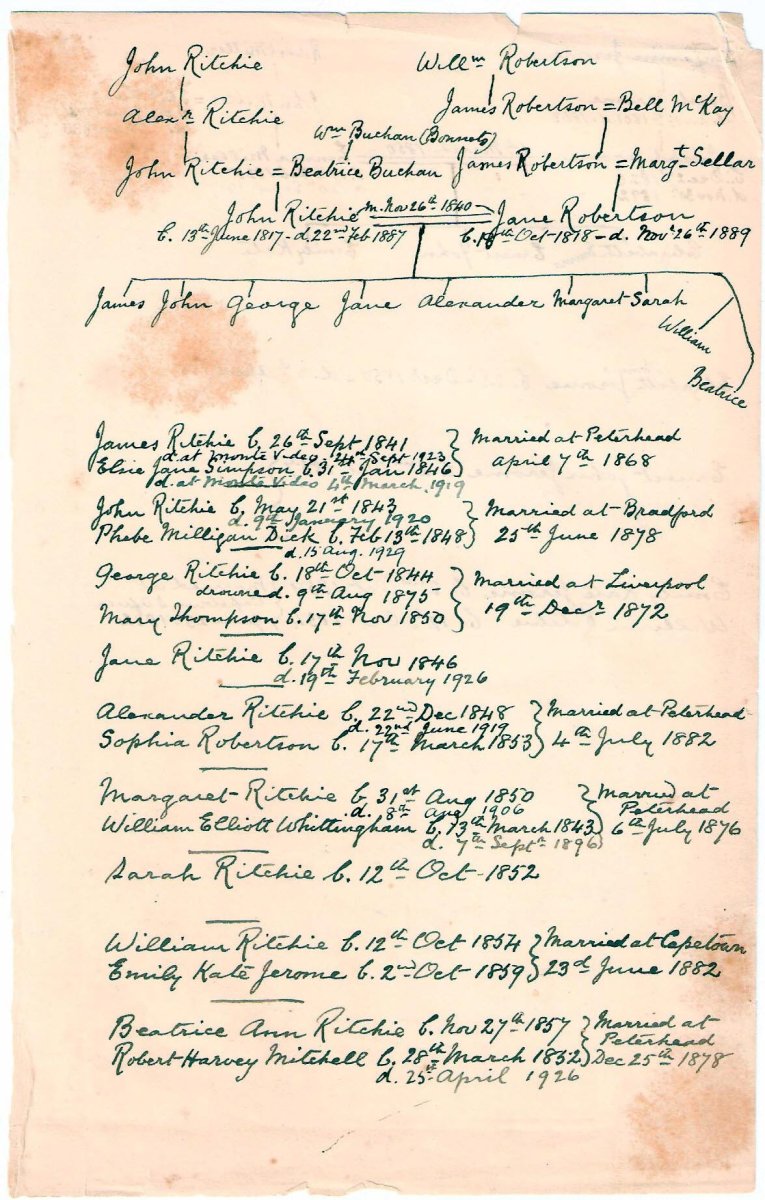 John Ritchie Willm Robertson
Alexr Ritchie James Robertson = Bell McKay
Wm Buchan (Bonnets)
John Ritchie = Beatrice Buchan James Robertson = Margt Sellar
John Ritchie m. Nov 26th 1840 Jane Robertson
b. 13th June 1817 - d. 22nd Feb 1887 b. Oct 1818 - d. Novr 26th 1889
James John George Jane Alexander Margaret Sarah
William
Beatrice
James Ritchie b. 26th Sept 1841 Married at Peterhead
d. at Monte Video, 24th Sept 1923
Elsie Jane Simpson b. 31st Jan 1846 April 7th 1868
d. at Monte Video 4th March. 1919
John Ritchie b. May 21st 1843 Married at Bradford
d. 9th January 1920
Phebe Milligan Dick b. Feb 13th 1848 25th June 1878
d. 15 Aug. 1929
George Ritchie b. 18th Oct 1844 Married at Liverpool
drowned. 9th Aug 1875
Mary Thompson b. 17th Nov 1850 19th Decr 1872
Jane Ritchie b. 17th Nov 1846
d. 19th February 1926
Alexander Ritchie b. 22nd Dec 1848 Married at Peterhead
d. 22nd June 1919
Sophia Robertson b. 17th March 1853 4th July 1882
Margaret Ritchie b. 31st Aug 1850 Married at
d. 8th 1906 Peterhead
William Elliott Whittingham b. 13th March 1843 6th July 1876
d. 7th Septr 1896
Sarah Ritchie b. 12th Oct - 1852
William Ritchie b. 12th Oct 1854 Married at Capetown
Emily Kate Jerome b. 2nd Oct 1859 23d June 1882
Beatrice Ann Ritchie b. Nov 27th 1857 Married at
Peterhead
Robert Harvey Mitchell b. 28th March 1852 Dec 25th 1878
d. 25th April 1926